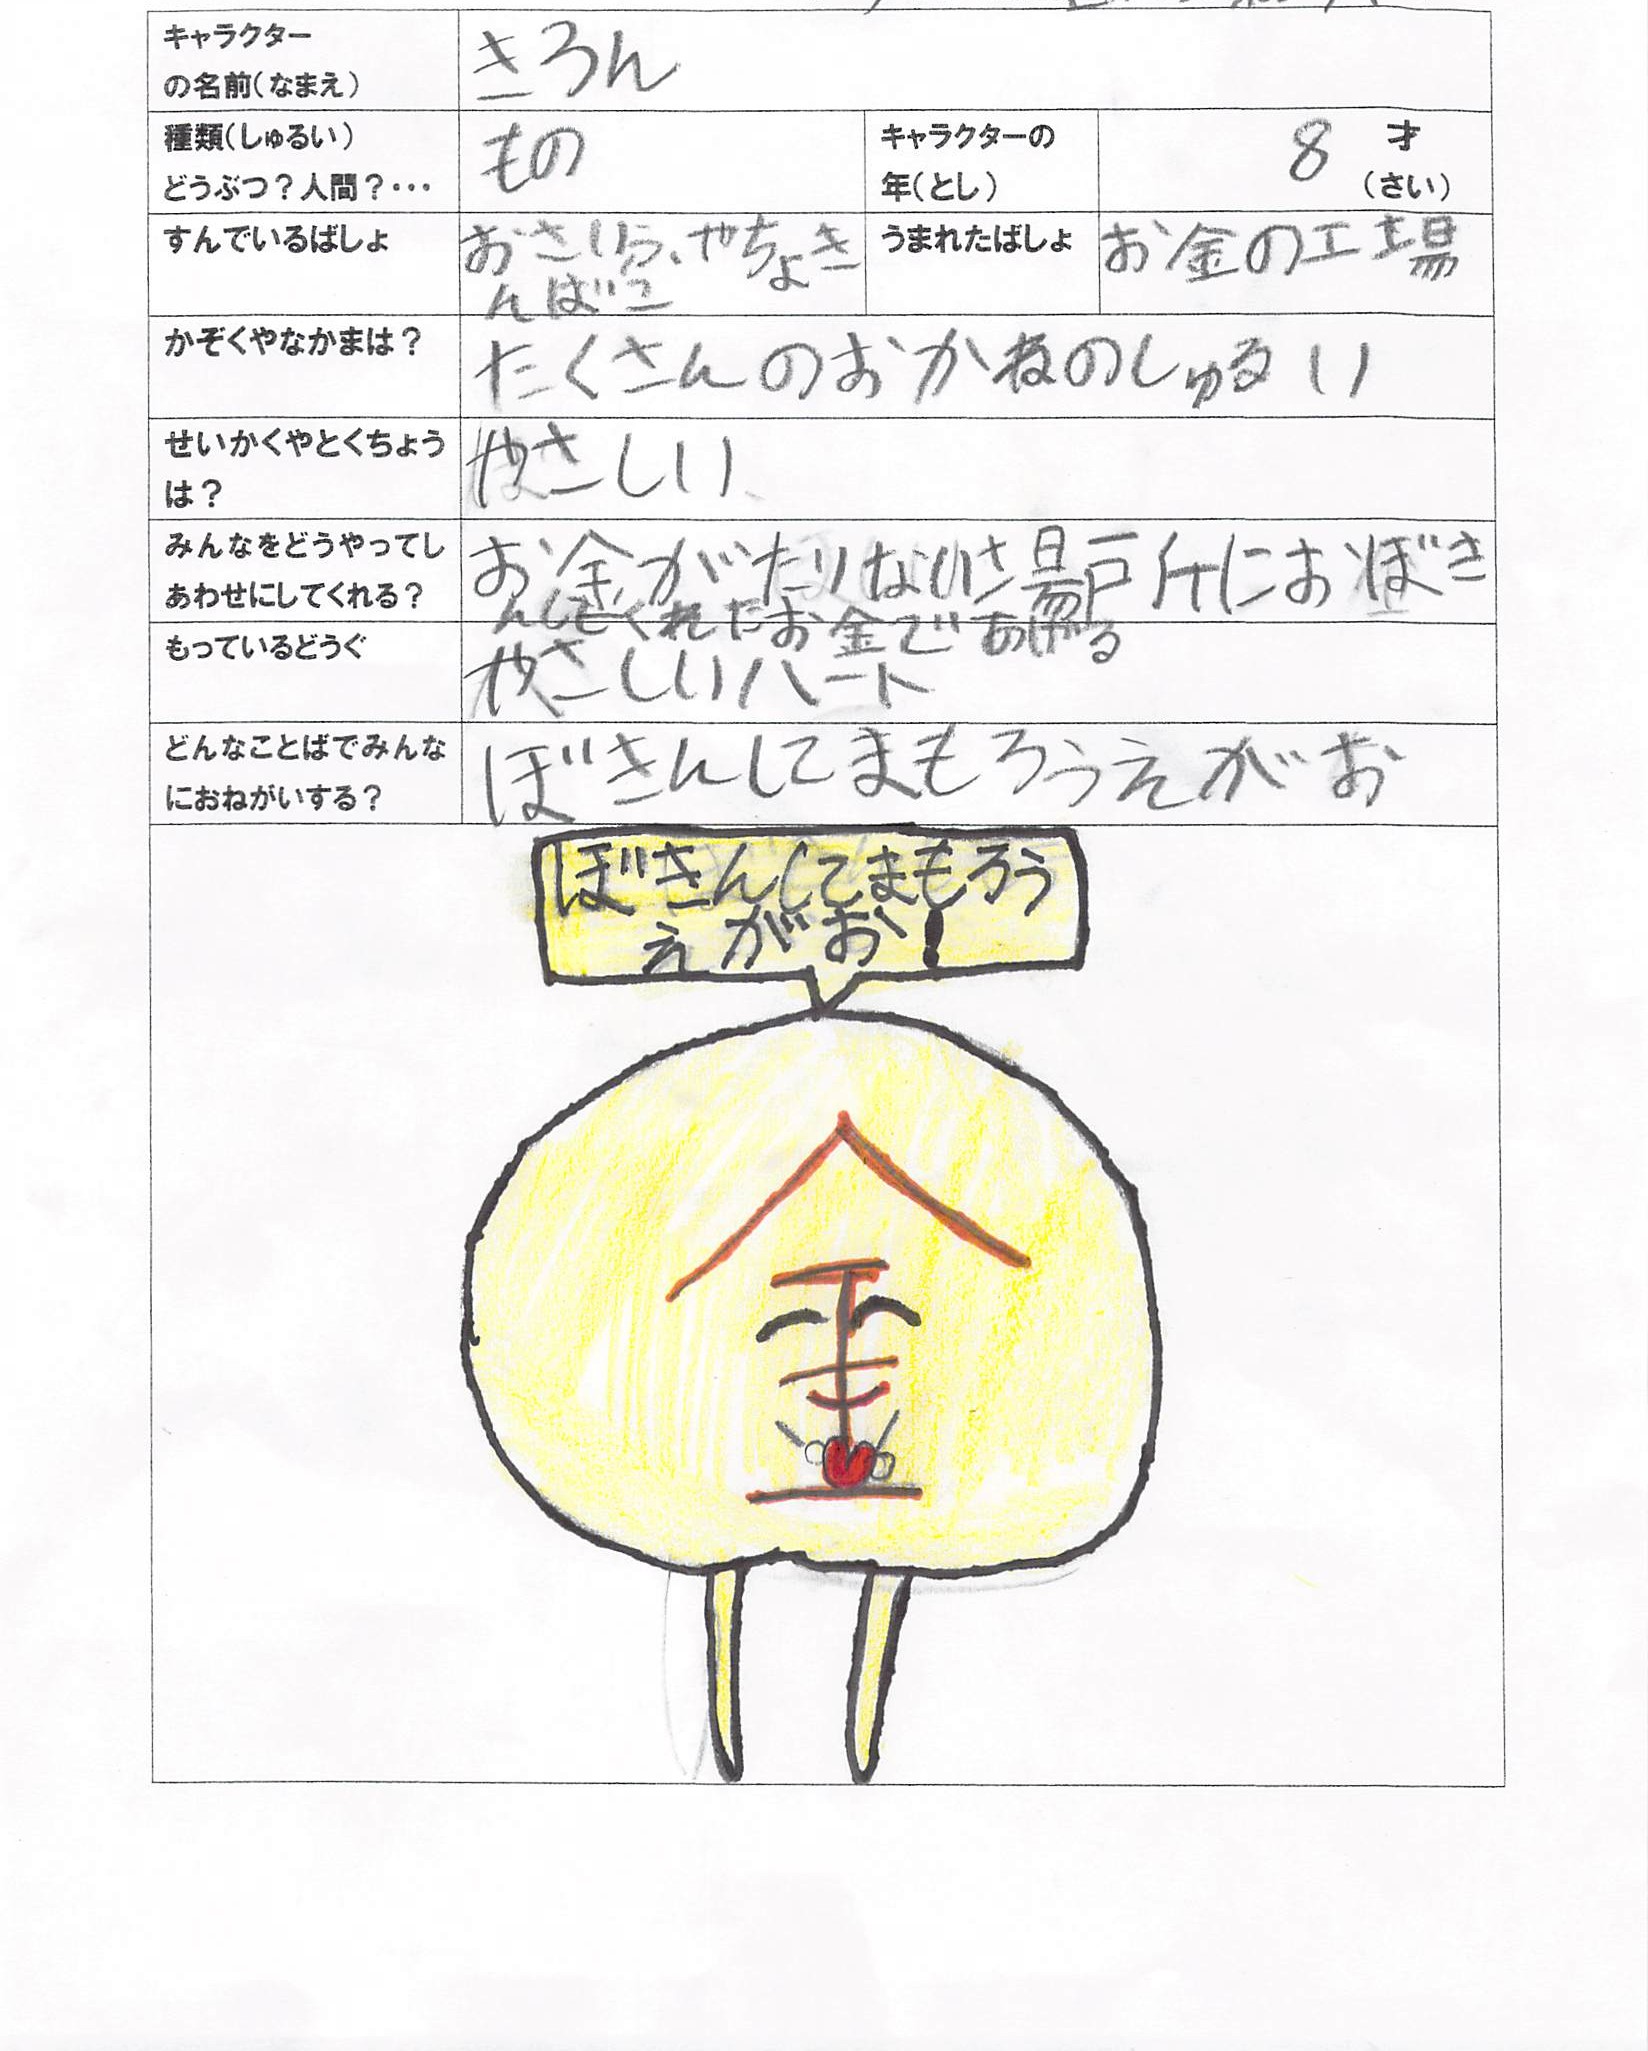 キャラクター
の名前(なまえ)
きろん
種類(しゅるい)
どうぶつ?人間?・・・
もの
キャラクターの
年(とし)
8 才
(さい)
すんでいるばしょ
おさいふ、やちょき
んばこ
うまれたばしょ
お金の工場
かぞくやなかまは?
たくさんのおかねのしゅるい
せいかくやとくちょう
は?
やさしい
みんなをどうやってし
あわせにしてくれる?
お金がたりないさ場所におぼき
んしてくれたお金であげる
もっているどうぐ
やさしいハート
どんなことばでみんな
におねがいする?
ぼきんしてまもろうえがお
ぼきんしてまもろう
えがお!
金